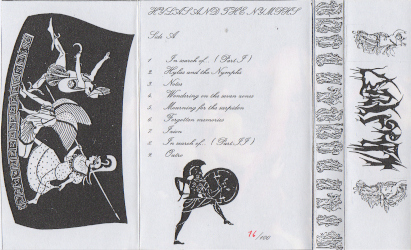 HYLAS AND THE NYMPHS
Side A
1 In search of... (Part I)
2 Hylas and the Nymphs
3 Notos
4 Wandering on the seven seas
5 Mourning for the sarpidon
6 Forgotten memories
7 Ixion
8 In search of... (Part II)
9 Outro
14/100